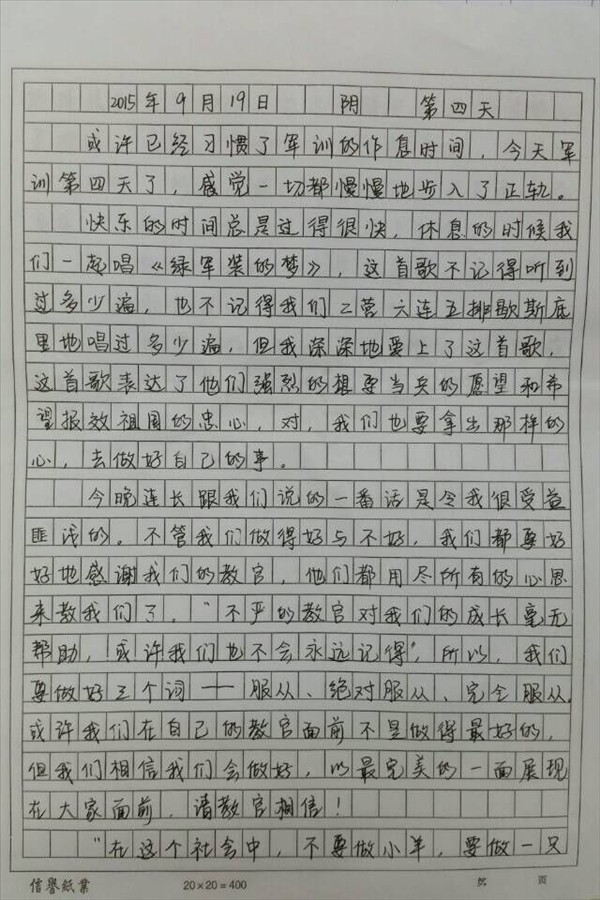 2015年9月19日 阴 第四天
或许已经习惯了军训的作息时间，今天军
训第四天了，感觉一切都慢慢地步入了正轨。
快乐的时间总是过得很快，休息的时候我
们一起唱《绿军装的梦》，这首歌不记得听到
过多少遍，也不记得我们二营六连五排歇斯底
里地唱过多少遍，但我深深地爱上了这首歌，
这首歌表达了他们强烈的想要当兵的愿望和希
望报效祖国的忠心，对，我们也要拿出那样的
心，去做好自己的事。
今晚连长跟我们说的一番话是令我很受益
匪浅的。不管我们做得好与不好，我们都要好
好地感谢我们的教官，他们都用尽所有的心思
来教我们了。“不严的教官对我们的成长毫无
帮助，或许我们也不会永远记得”，所以，我们
要做好三个词——服从、绝对服从、完全服从。
或许我们在自己的教官面前不是做得最好的，
但我们相信我们会做好，以最完美的一面展现
在大家面前，请教官相信！
“在这个社会中，不要做小羊，要做一只
信誉纸业 20×20=400 页